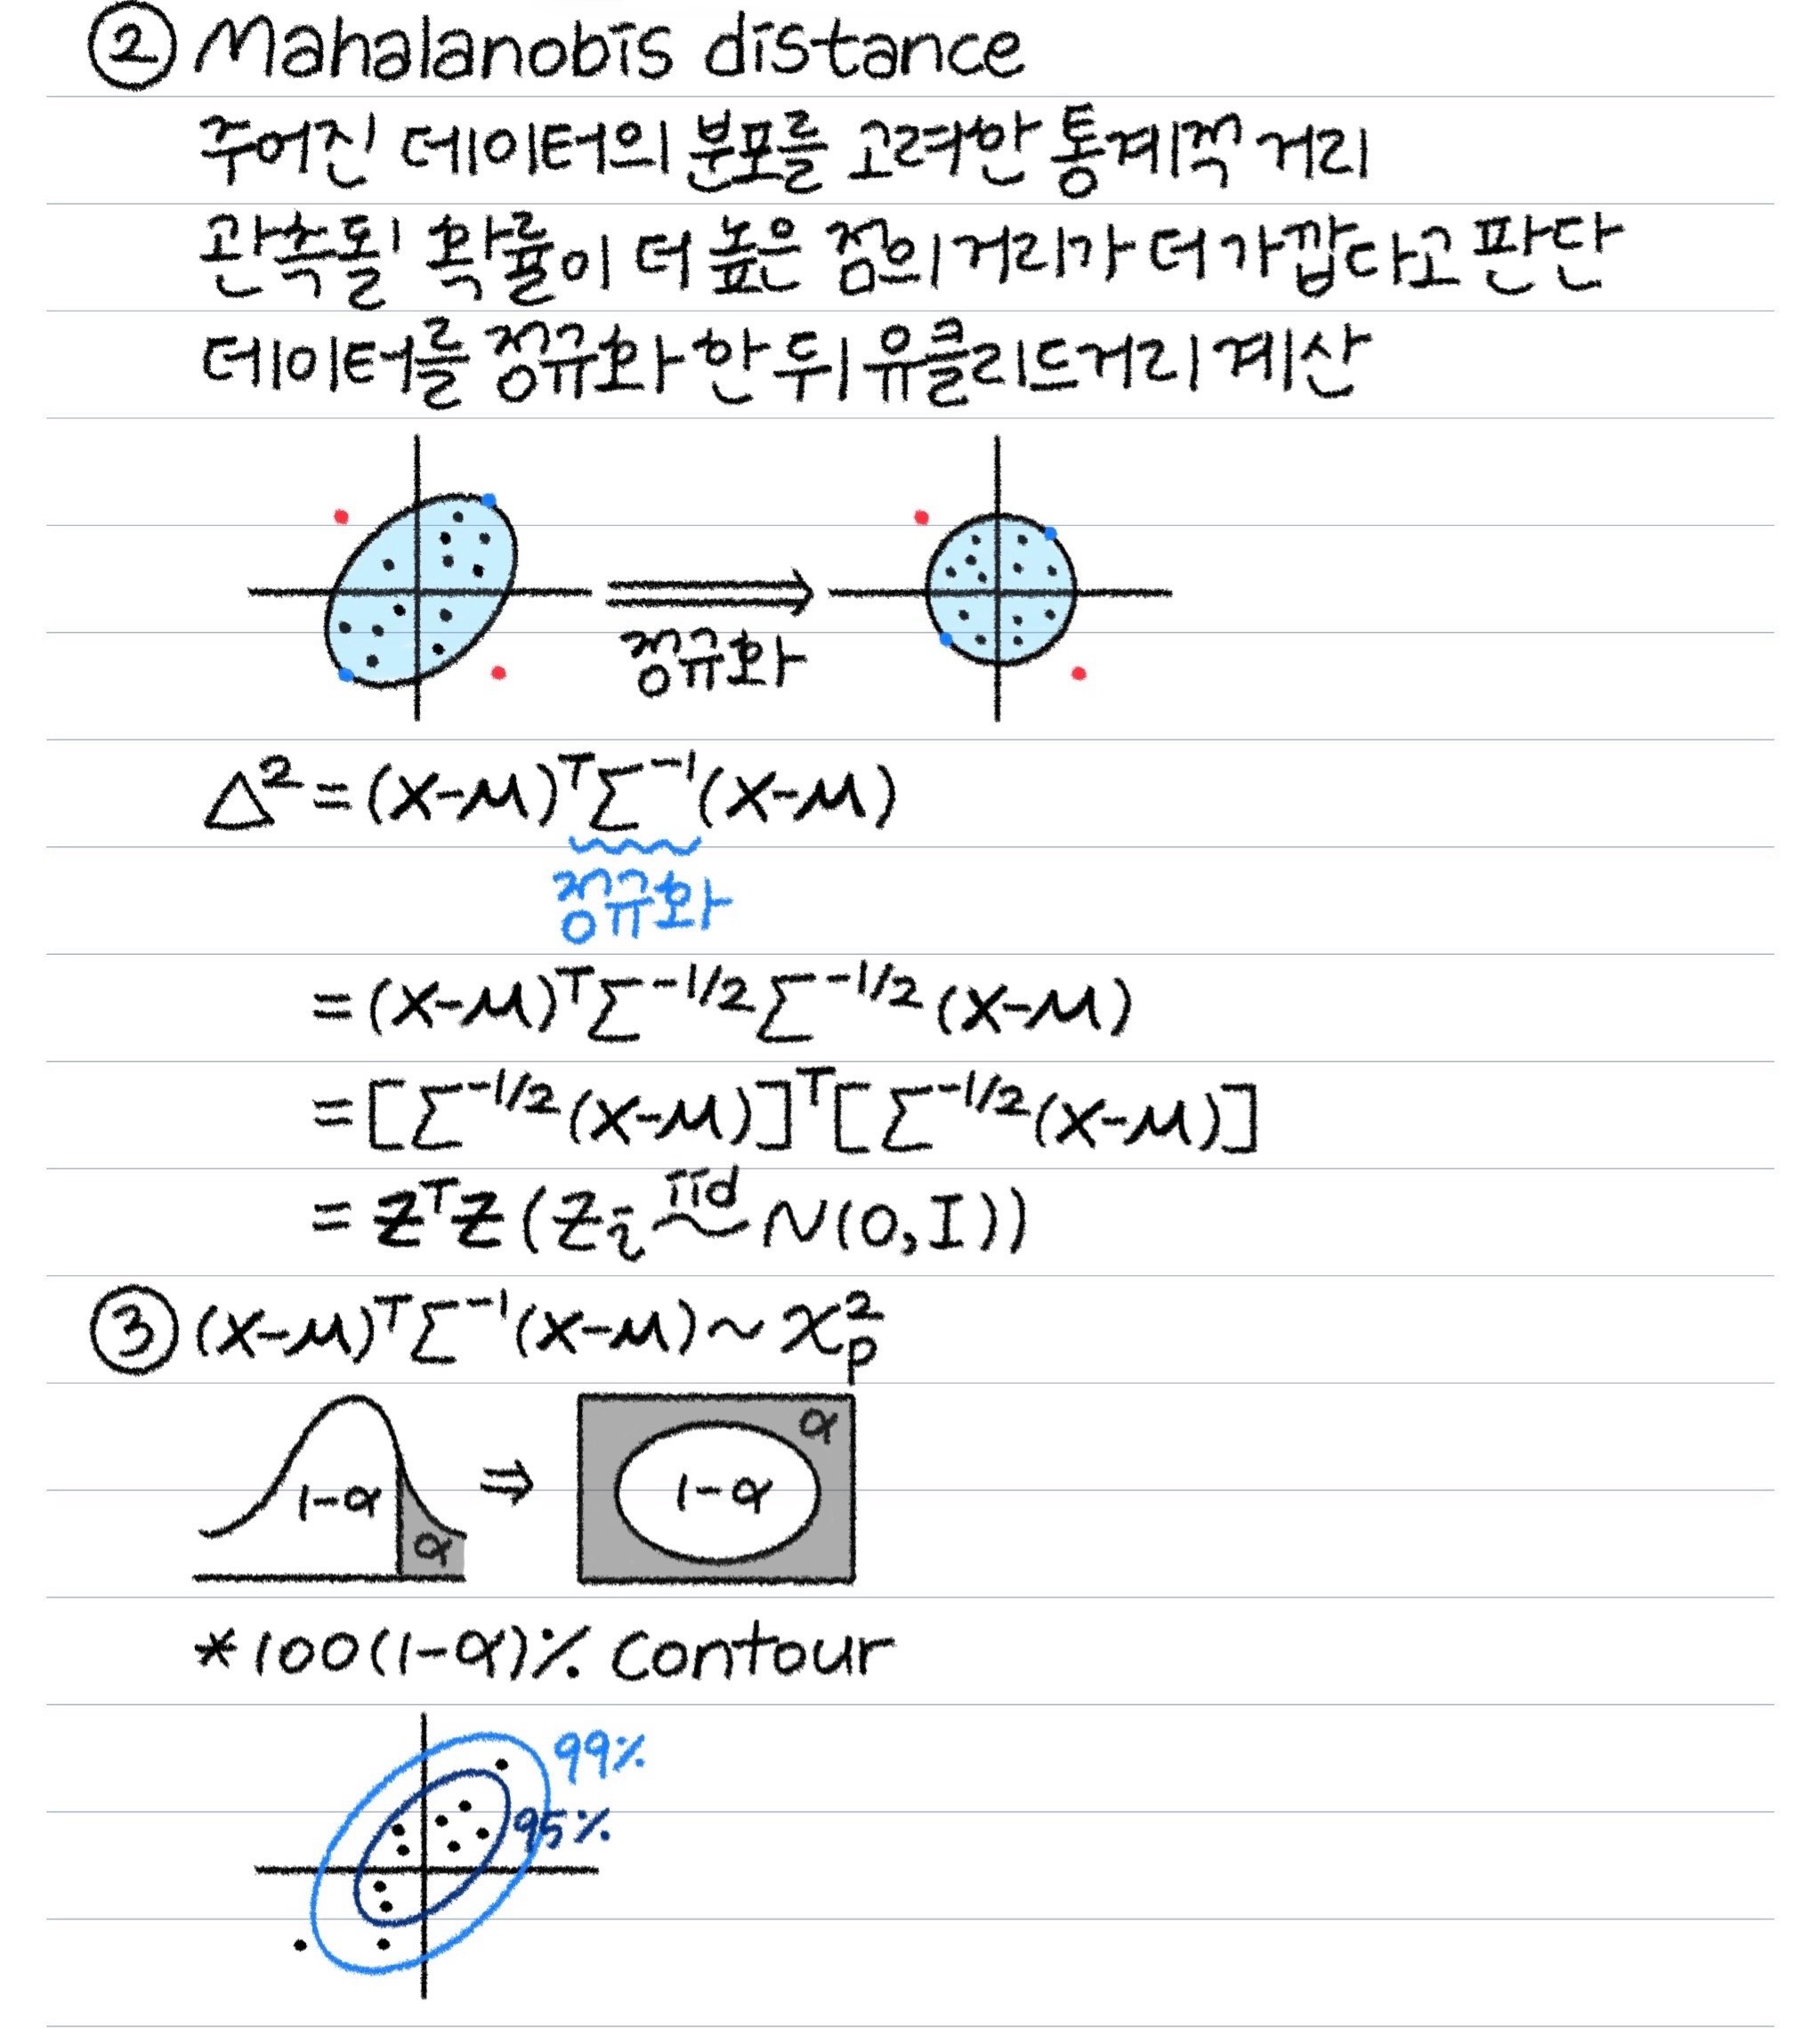 ② Mahalanobis distance
주어진 데이터의 분포를 고려한 통계적 거리
관측될 확률이 더 높은 점의 거리가 더 가깝다고 판단
데이터를 정규화 한 뒤 유클리드거리 계산
정규화
Δ² = (x-μ)ᵀΣ⁻¹(x-μ)
정규화
= (x-μ)ᵀΣ^(-1/2)Σ^(-1/2)(x-μ)
= [Σ^(-1/2)(x-μ)]ᵀ[Σ^(-1/2)(x-μ)]
= zᵀz (z_i ~^iid N(0,I))
③ (x-μ)ᵀΣ⁻¹(x-μ) ~ χ²_p
1-α α ⇒ 1-α α
*100(1-α)% contour
99%
95%